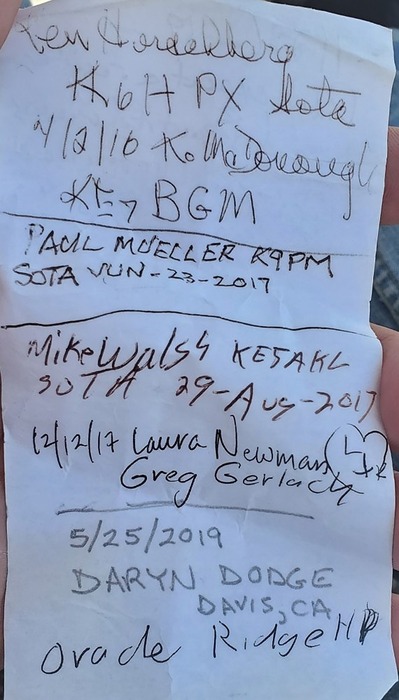 Ken
K6HPX Sota
4/2/16 K. McDonough
KE7BGM
PAUL MUELLER K9PM
SOTA JUN-23-2017
Mike Walsh KE5AKL
SOTA 29-Aug-2017
12/12/17 Laura Newman
Greg Gerlach
5/25/2019
DARYN DODGE
DAVIS, CA
Oracle Ridge HP